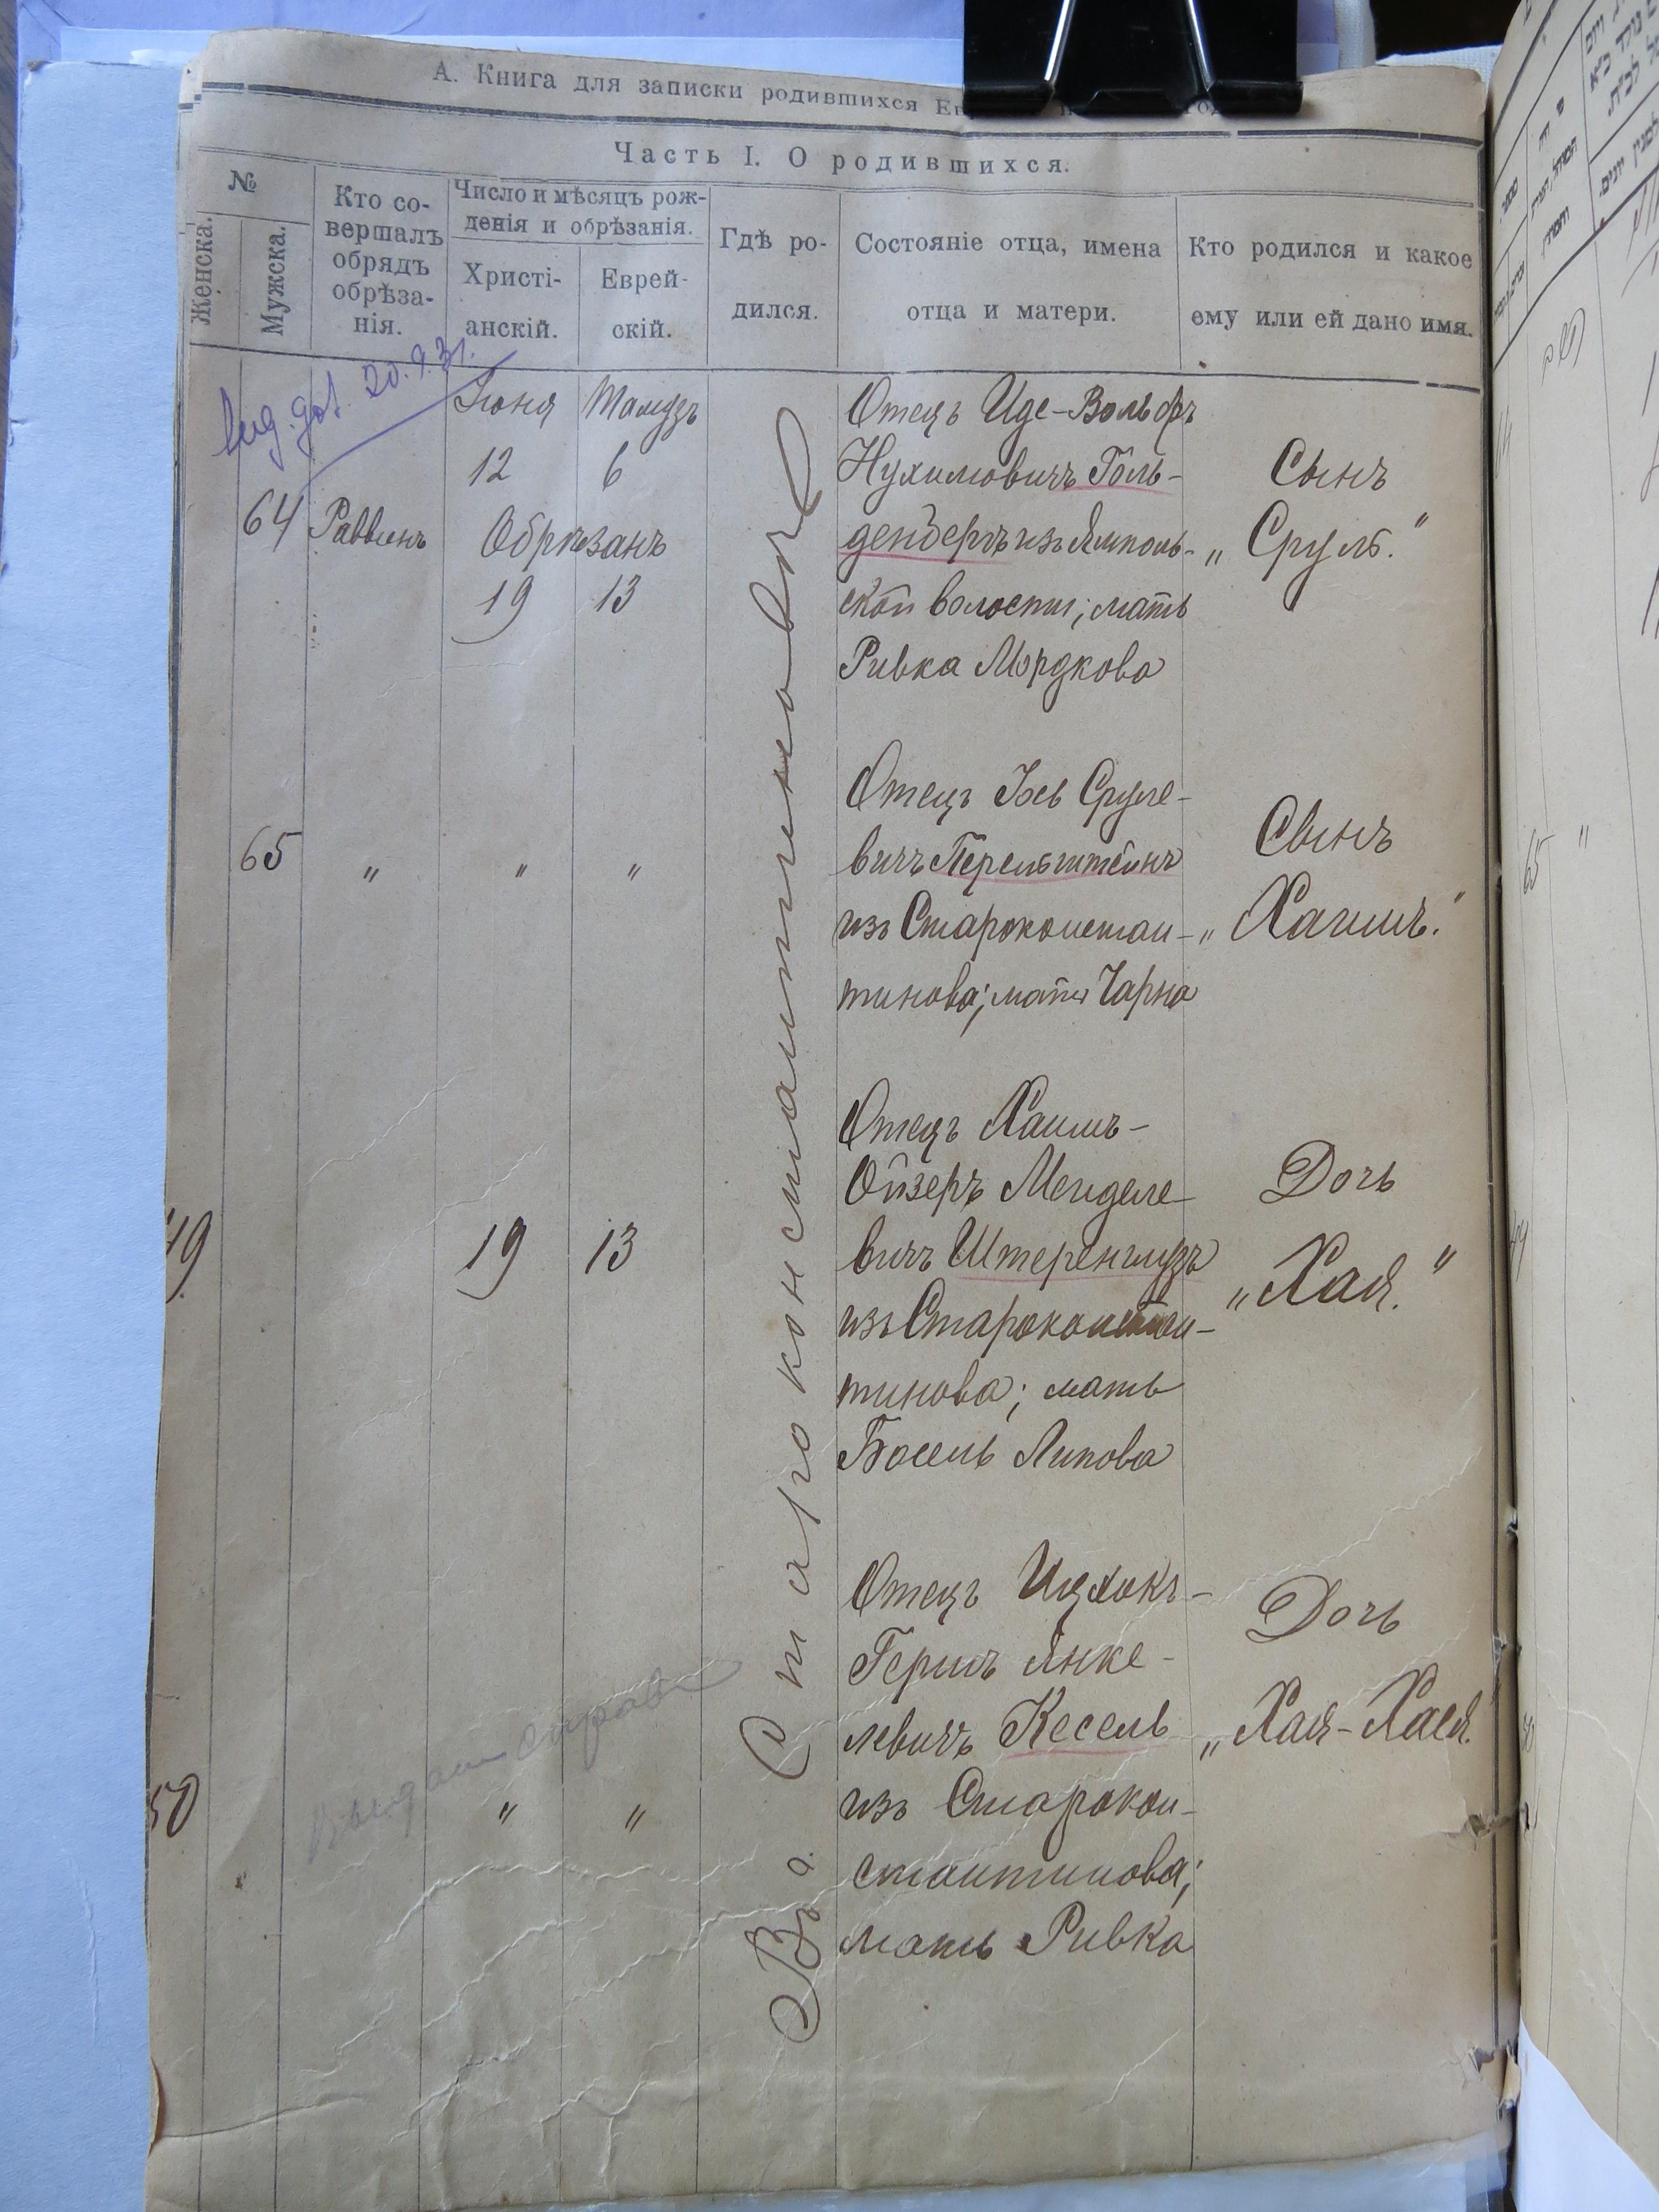 А. Книга для записки родившихся Ев
Часть I. О родившихся.
№
Женска.
Мужска.
Кто со-
вершалъ
обрядъ
обрѣза-
нія.
Число и мѣсяцъ рож-
денія и обрѣзанія.
Христі-
анскій.
Еврей-
скій.
Гдѣ ро-
дился.
Состояніе отца, имена
отца и матери.
Кто родился и какое
ему или ей дано имя.
20.9.31.
64
Раввинъ
Іюня
Тамузъ
12
6
Обрѣзанъ
19
13
Въ г. Староконстантиновѣ
Отецъ Иде-Вольфъ
Нухимовичъ Голь-
денбергъ изъ Ямполь-
ской волости; мать
Ривка Мордкова
Сынъ
„Сруль."
65
"
"
"
Отецъ Іось Сруле-
вичъ Перельштейнъ
изъ Староконстан-
тинова; мать Чарна
Сынъ
„Хаимъ."
49
19
13
Отецъ Хаимъ-
Ойзеръ Менделе-
вичъ Штеренгцузъ
изъ Староконстан-
тинова; мать
Босель Липова
Дочь
„Хая."
50
Выдана справка
"
"
Отецъ Ицхокъ-
Гершъ Янке-
левичъ Кесель
изъ Старокон-
стантинова;
мать Ривка
Дочь
„Хая-Хася."
65
"